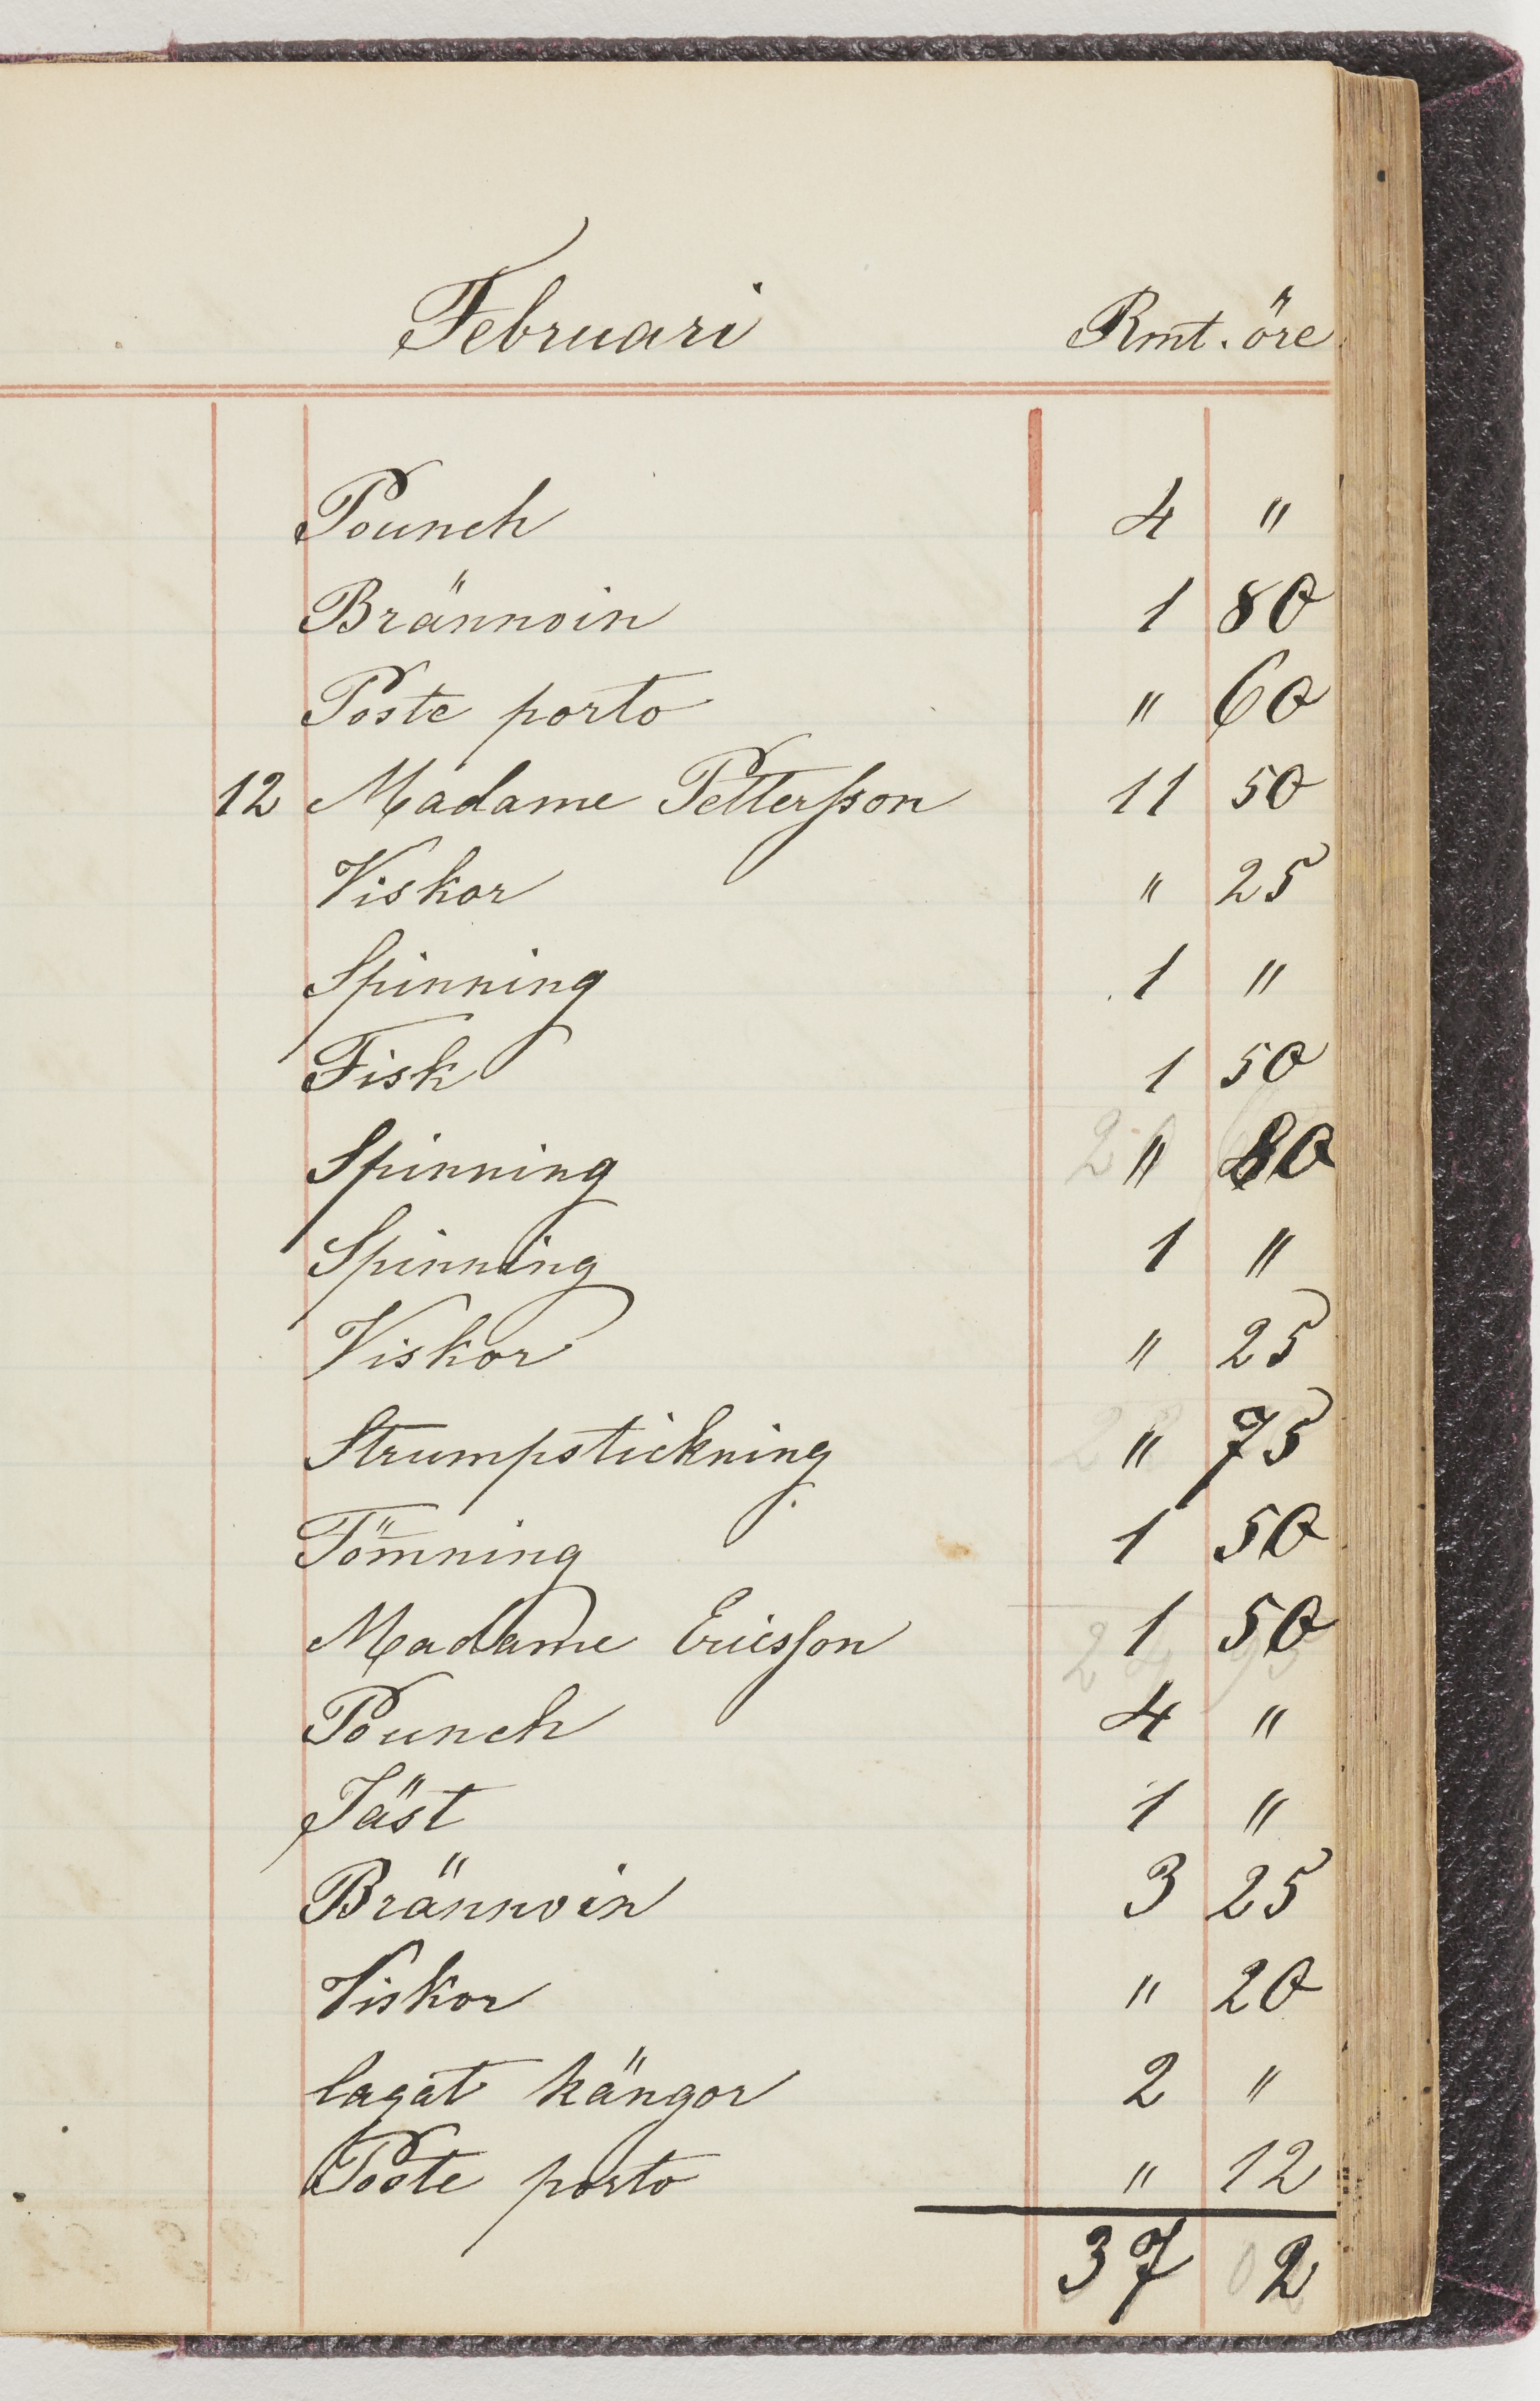 Februari Rmt. öre
Pounch 4 "
Brännvin 1 80
Poste porto " 60
12 Madame Pettersson 11 50
Viskor " 25
Spinning 1 "
Fisk 1 50
Spinning " 80
Spinning 1 "
Viskor " 25
Strumpstickning " 75
Tömning 1 50
Madame Ericsson 1 50
Pounch 4 "
Jäst 1 "
Brännvin 3 25
Viskor " 20
lagat kängor 2 "
Poste porto " 12
37 2